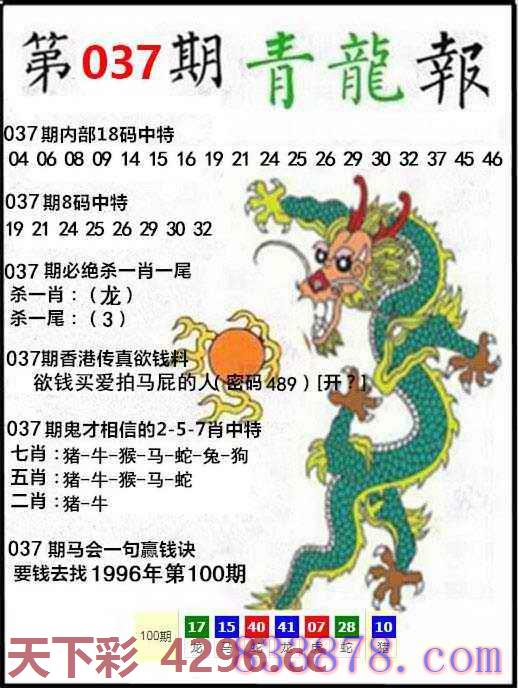 第037期青龍報
037期内部18码中特
04 06 08 09 14 15 16 19 21 24 25 26 29 30 32 37 45 46
037期8码中特
19 21 24 25 26 29 30 32
037期必绝杀一肖一尾
杀一肖：（龙）
杀一尾：（3）
037期香港传真欲钱料
欲钱买爱拍马屁的人（密码489）[开？]
037期鬼才相信的2-5-7肖中特
七肖：猪-牛-猴-马-蛇-兔-狗
五肖：猪-牛-猴-马-蛇
二肖：猪-牛
037期马会一句赢钱诀
要钱去找1996年第100期
100期 17 15 40 41 07 28 10
龙 马 蛇 龙 虎 蛇 猪
天下彩 4296.cc
838878.com